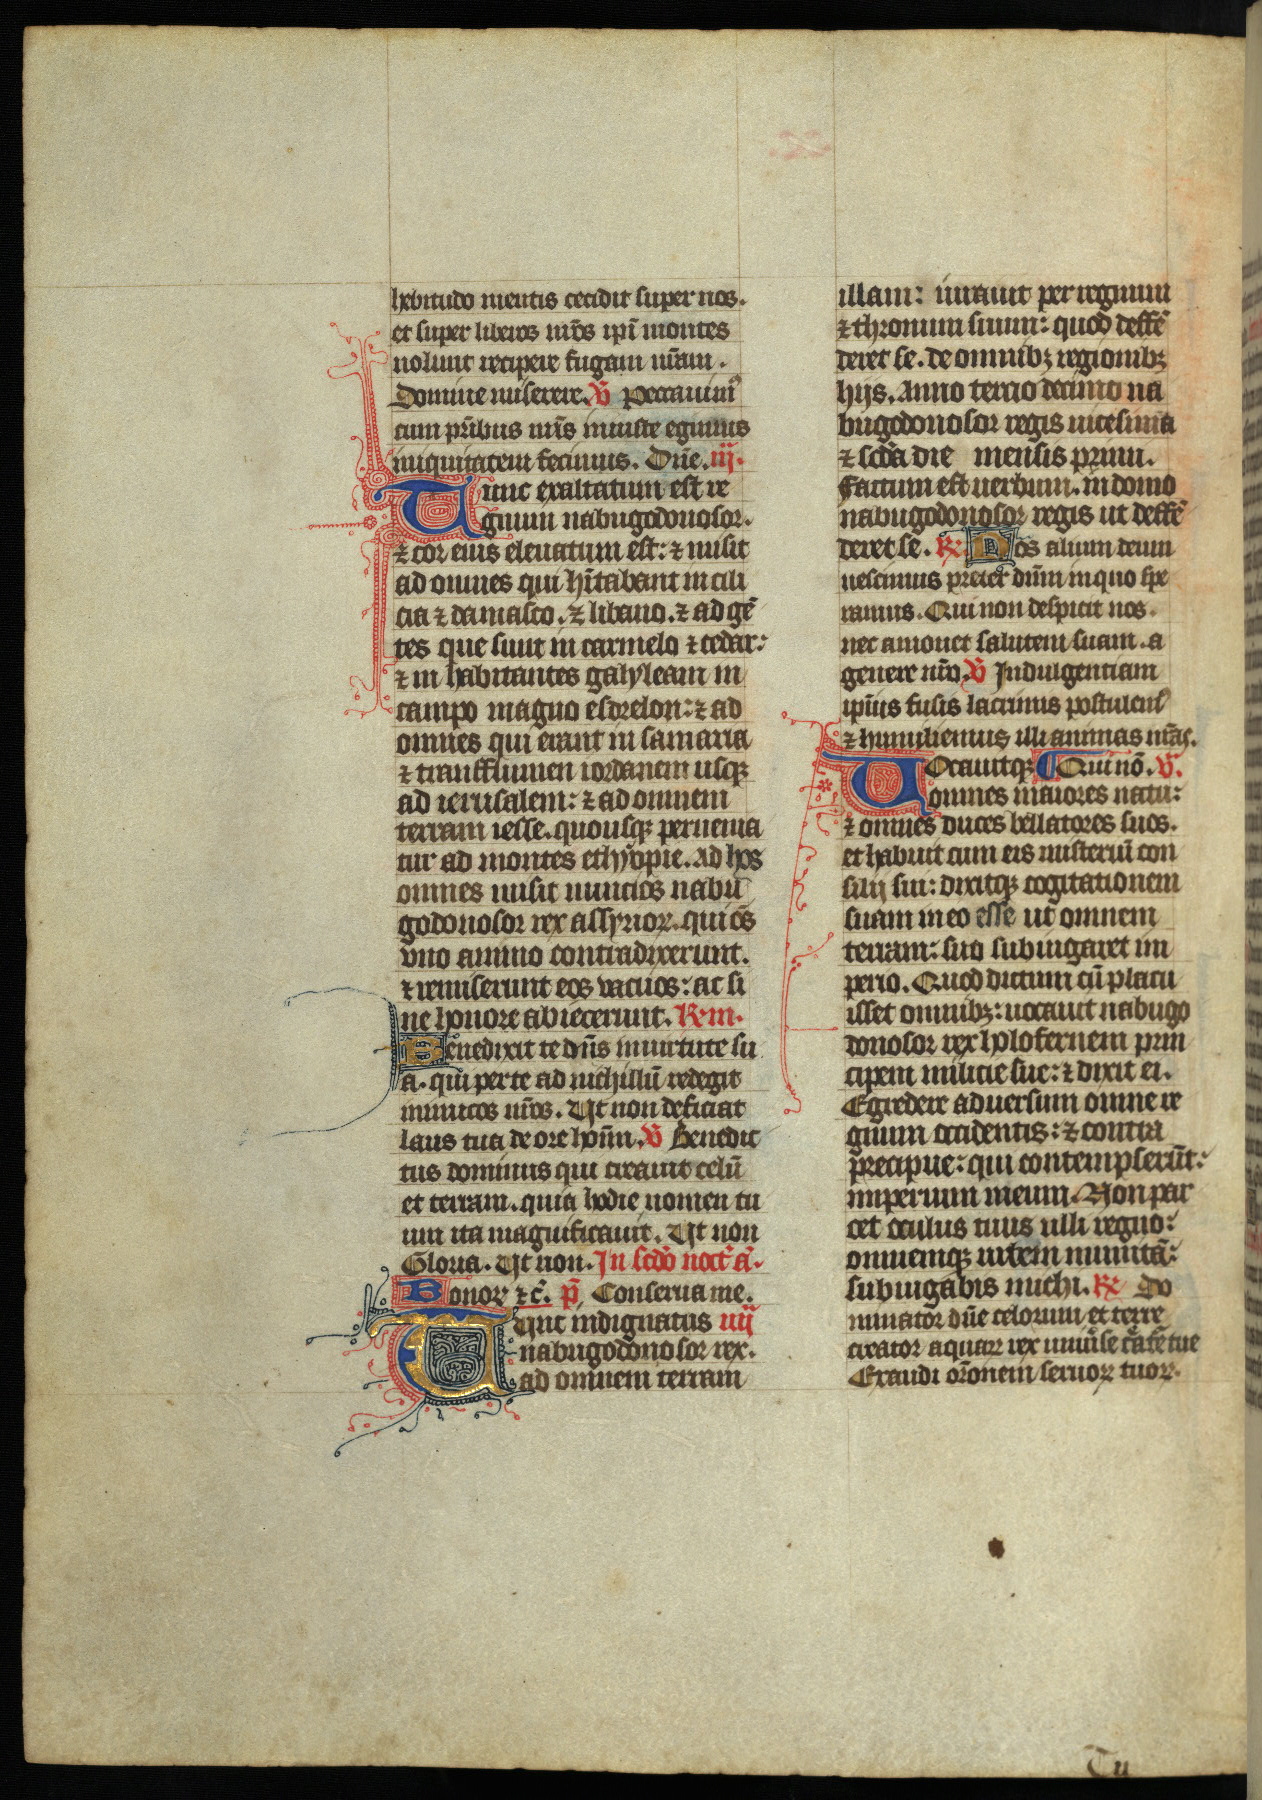 hebitudo mentis cecidit super nos.
et super liberos nr̄os ip̄i montes
nolunt recipere fugam nr̄am.
Domine miserere. V̄ Peccauim᷒
cum pr̄ibus nr̄is iniuste egimus
iniquitatem fecimus. Dn̄e. iij.
Tunc exaltatum est re
gnum nabugodonosor.
⁊ cor eius eleuatum est: ⁊ misit
ad omnes qui hītabant in cili
cia ⁊ damasco. ⁊ libano. ⁊ ad gē
tes que sunt in carmelo ⁊ cedar:
⁊ in habitantes galyleam in
campo magno esdrelon: ⁊ ad
omnes qui erant in samaria
⁊ transflumen iordanem usqꝫ
ad ierusalem: ⁊ ad omnem
terram iesse. quousqꝫ peruenia
tur ad montes ethyopie. Ad hos
omnes misit nuncios nabu
godonosor rex assyrioꝝ. qui oēs
vno animo contradixerunt.
⁊ remiserunt eos vacuos: ac si
ne honore abiecerunt. R. m.
Benedixit te dn̄s in uirtute su
a. qui per te ad nichillū redegit
inimicos nr̄os. Ut non deficiat
laus tua de ore hoīm. V̄ Benedic
tus dominus qui creauit celū
et terram. quia hodie nomen tu
um ita magnificauit. Ut non
Gloria. Ut non. In scd̄o noct̄. a̅.
Bonoꝝ ⁊c̄. p̄s Conserua me.
Tunc indignatus iiij
nabugodonosor rex.
ad omnem terram
illam: iurauit per regnum
⁊ thronum suum: quod deffē
deret se. de omnibꝫ regionibꝫ
hijs. Anno tercio decimo na
bugodonosor regis uicesima
⁊ scd̄a die mensis primi.
Factum est uerbum. in domo
nabugodonosor regis ut deffē
deret se. R̄ Nos alium deum
nescimus preter dn̄m in quo spe
ramus. Qui non despicit nos.
nec amouet salutem suam. a
genere nr̄o. V̄ Indulgentiam
ip̄ius fusis lacrimis postulem᷒
⁊ humiliemus illi animas nr̄as.
Uocauitqꝫ ¶ Qui nō. V.
omnes maiores natu:
⁊ omnes duces bellatores suos.
et habuit cum eis misteriū con
silij sui: dixitqꝫ cogitationem
suam in eo esse ut omnem
terram: suo subiugaret im
perio. Quod dictum cū placu
isset omnibꝫ: uocauit nabugo
donosor rex holofernem prin
cipem milicie sue: ⁊ dixit ei.
Egredere aduersum omne re
gnum occidentis: ⁊ contra
precipue: qui contempserūt:
imperium meum. Non par
cet oculus tuus ulli regno:
omnemqꝫ urbem munitā:
subiugabis michi. R̄ Do
minator dn̄e celorum et terre
creator aquaꝝ rex uniūse c̄ate tue
Exaudi or̄onem seruoꝝ tuoꝝ.
Tu